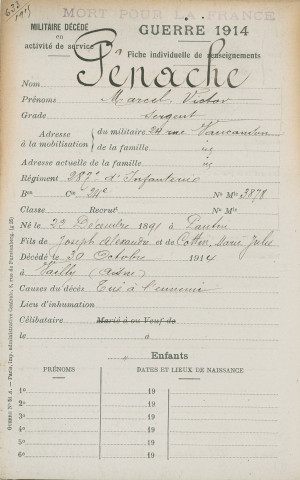 632
1915
MORT POUR LA FRANCE
MILITAIRE DÉCÉDÉ
en
activité de service
GUERRE 1914
Fiche individuelle de renseignements
Nom Penache
Prénoms Marcel Victor
Grade Sergent
Adresse à la mobilisation
du militaire 24 rue Vaucanson
de la famille id
Adresse actuelle de la famille id
Régiment 287e d'Infanterie
Bon Cie 24e No Mle 3878
Classe Recrut No Mle
Né le 22 Décembre 1891 à Pantin
Fils de Joseph Alexandre et de Marie Julie
Décédé le 30 Octobre 1914
à Vailly (Aisne)
Causes du décès Tué à l'ennemi
Lieu d'inhumation
Célibataire Marié à ou Veuf de
le à
Enfants
PRÉNOMS DATES ET LIEUX DE NAISSANCE
1 19
2 19
3 19
4 19
5 19
6 19